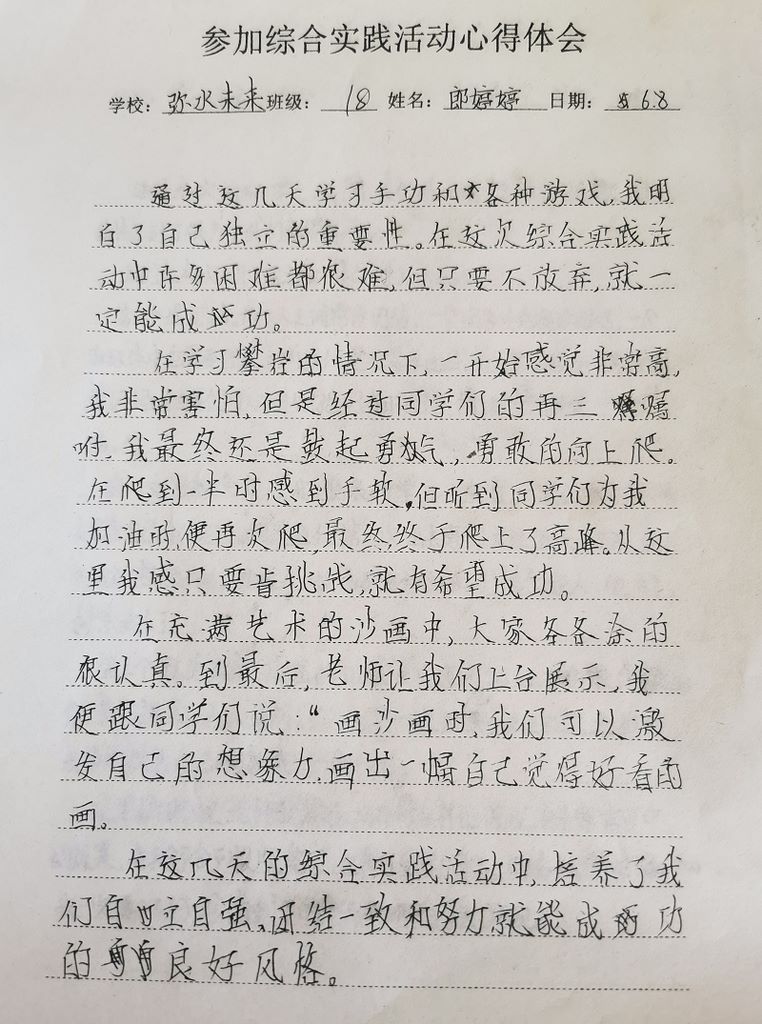 参加综合实践活动心得体会
学校：弥水未来 班级：18 姓名：郎婷婷 日期：6.8
通过这几天学习手功和各种游戏，我明
白了自己独立的重要性。在这次综合实践活
动中许多困难都很难，但只要不放弃，就一
定能成功。
在学习攀岩的情况下，一开始感觉非常高，
我非常害怕，但是经过同学们的再三嘱
咐，我最终还是鼓起勇气，勇敢的向上爬。
在爬到一半时感到手软，但听到同学们为我
加油时，便再次爬，最终终于爬上了高峰。从这
里我感只要肯挑战，就有希望成功。
在充满艺术的沙画中，大家各各涂的
很认真。到最后，老师让我们上台展示，我
便跟同学们说：“画沙画时，我们可以激
发自己的想象力，画出一幅自己觉得好看的
画。
在这几天的综合实践活动中，培养了我
们自立自强，团结一致和努力就能成功
的良好风格。